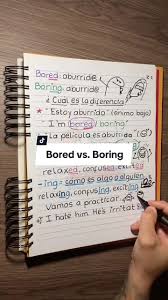 Bored: aburrid@
Boring: aburrid@
¿Cuál es la diferencia?
"Estoy aburrid@" (ánimo bajo)
"I'm bored / boring"
"La película es aburrida"
Bored vs. Boring
relaxed, confused, excited
-ing = somo es algo o alguien
relaxing, confusing, exciting
Vamos a practicar
I hate him. He's irritat